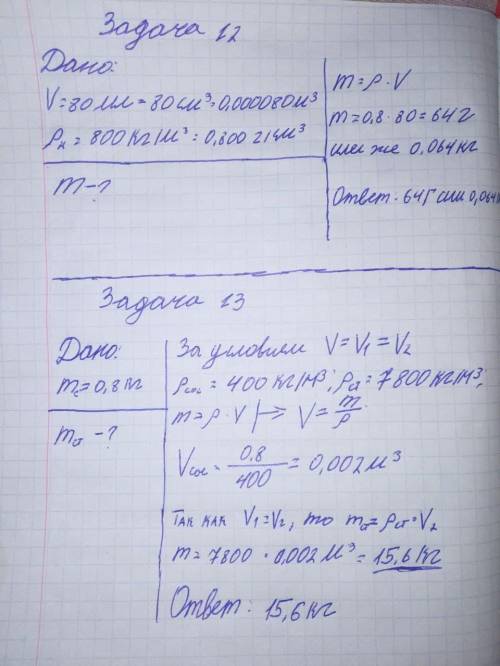 Задача 12
Дано:
V=80мл=80см³=0,000080м³
ρк = 800 кг/м³ = 0,800 г/см³
m-?
m=ρ·V
m=0,8·80=64г
или же 0,064кг
Ответ. 64г или 0,064
Задача 13
Дано:
mс=0,8кг
mст -?
За условием V=V₁=V₂
ρсос = 400 кг/м³; ρст = 7800 кг/м³;
m=ρ·V |=> V= m/ρ.
Vсос = 0,8/400 = 0,002м³
Так как V₁=V₂, то mст=ρст·V₂
m= 7800 · 0,002м³ = 15,6кг
Ответ: 15,6кг